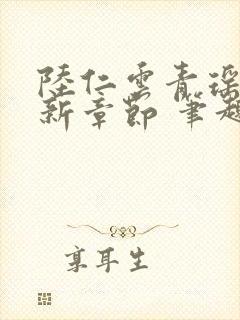 陸仁雲青瑶
新章節 筆趣
享耳生